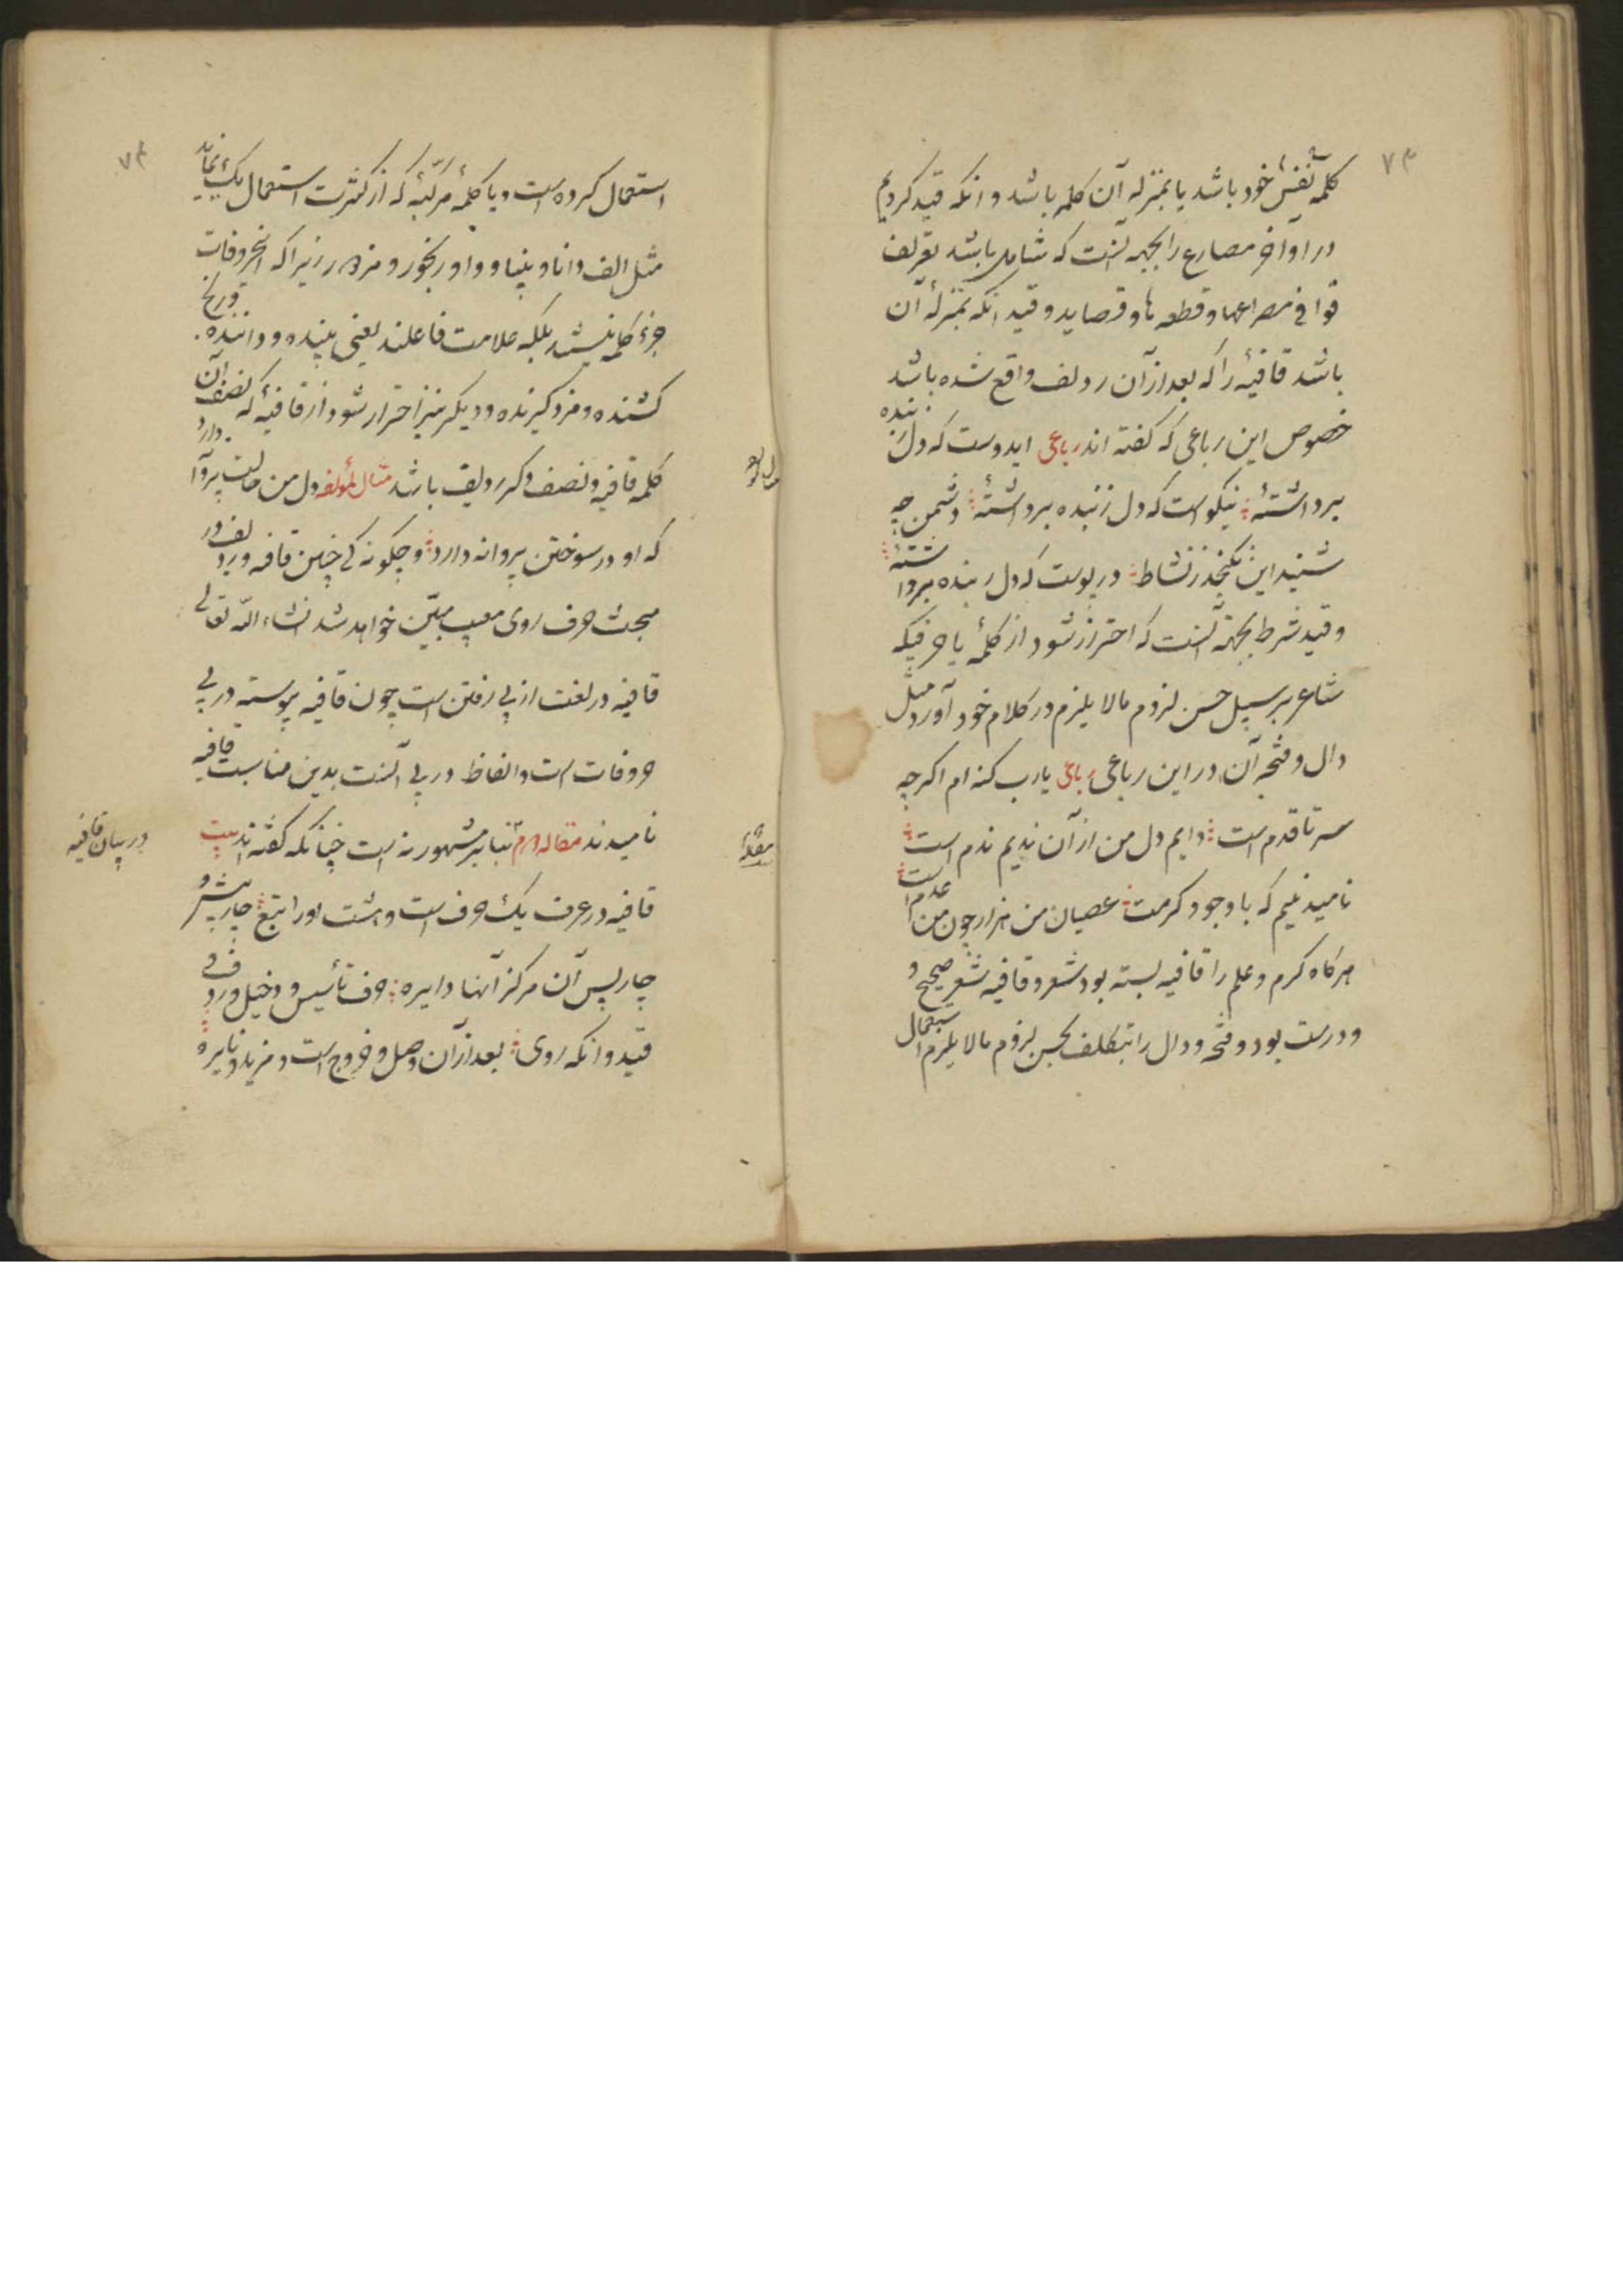 ۷۳
کلمه بنفس خود باشد یا بمنزله آن کلمه باشد و انکه قید کردیم
در اواخر مصارع را بجهه آنست که شامل باشد تعریف
قوافی مصراعها و قطعه ها و قصاید و قید انکه بمنزلهٔ آن
باشد قافیهٔ را که بعد از آن ردیف واقع شده باشد
خصوص این رباعی که کفته اند رباعی ایدوست که دل ز بنده
برداشتهٔ نیکوست که دل ز بنده برداشتهٔ دشمن چو
شنید این نکنجد ز نشاط در پوست که دل ز بنده برداشتهٔ
و قید شرط بجهة آنست که احتراز شود از کلمهٔ یا حرفیکه
شاعر بر سبیل حسن لزوم مالا یلزم در کلام خود آورد مثل
دال و فتحه آن در این رباعی رباعی یارب کنه ام اکرچه
سر تا قدم است دایم دل من از آن ندیم ندم است
نامید نیم که با وجود کرمت عصیان من هزار چون من عدم است
هرکاه کرم و علم را قافیه بسته بود شعر و قافیه شعر صحیح و
و درست بود و فتحه و دال را بتکلف بحسن لزوم مالا یلزم استعمال
۷۴
استعمال کرده است و یا کلمهٔ مرکبهٔ که از کثرت استعمال یک نماید
مثل الف دانا و بینا و واو رنجور و مزدور زیرا که اینحروفات
جزء کلمه نیستند بلکه علامت فاعلند یعنی بیننده و داننده و رنج
کشنده و مزد کیرنده و دیکر نیز احتراز شود از قافیهٔ که نصف آن
کلمه قافیه و نصف دکر ردیف باشد مثال لمؤلفه دل من حالت پروا دارد
که او در سوختن پروانه دارد و چکونه کی چنین قافه و ردیف در
مبحث حرف روی معیب مبیّن خواهد شد انشاء الله تعالی
قافیه در لغت از پی رفتن است چون قافیه پیوسته در پی
حروفات است و الفاظ در پی آنست بدین مناسبت قافیه
نامیدند مقاله دوم بنابر مشهور نه است چنانکه کفته اند بیت
در بیان قافیه
قافیه در عرف یک حرف است و هشت اورا تبع چار پیش و
چار پس آن مرکز آنها دایره حرف تأسیس و دخیل و ردف و
قید و انکه روی بعد از آن وصل و خروج است و مزید و نایره